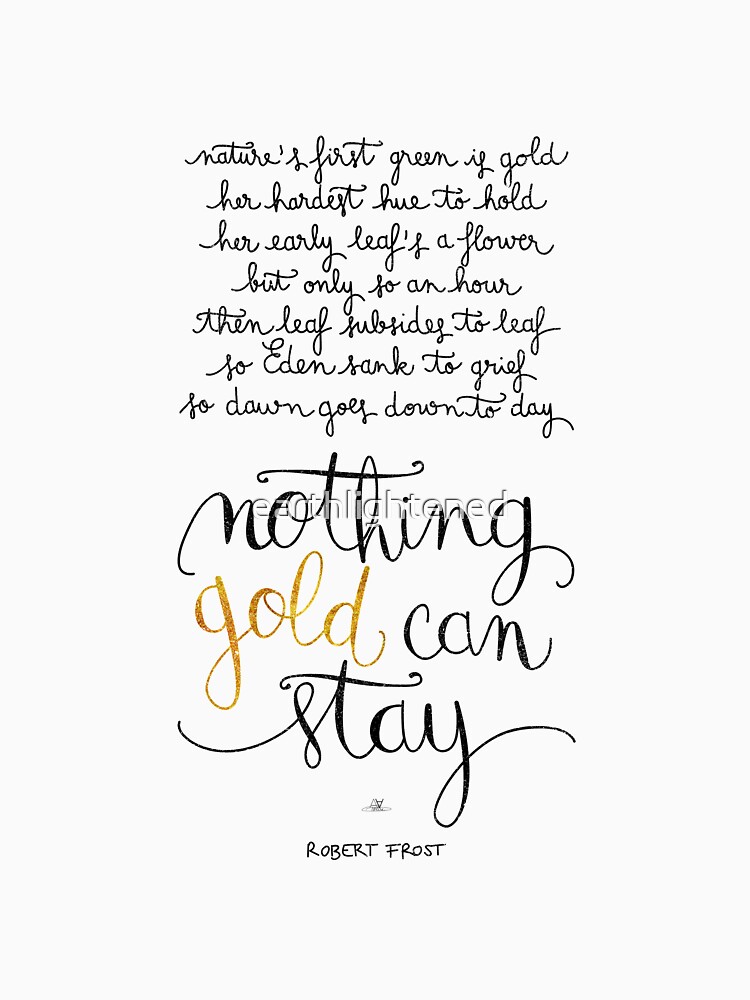 nature's first green is gold
her hardest hue to hold
her early leaf's a flower
but only so an hour
then leaf subsides to leaf
so Eden sank to grief
so dawn goes down to day
nothing
earthlightened
gold can
stay
ROBERT FROST